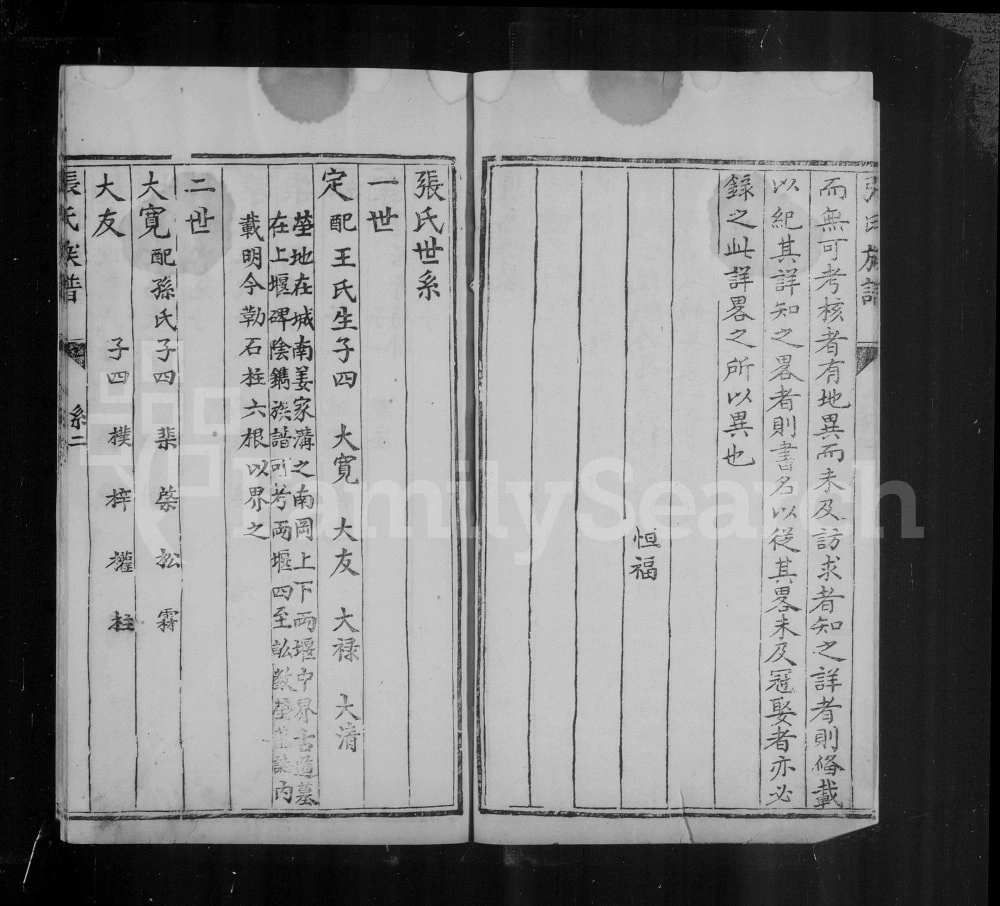 張氏族譜
而無可考核者有地異而未及訪求者知之詳者則俻載
以紀其詳知之畧者則書名以從其畧未及冠娶者亦必
錄之此詳畧之所以異也
恒福
張氏世系
一世
定配王氏生子四 大寬 大友 大祿 大清
塋地在城南姜家溝之南岡上下兩堰中界古道墓
在上堰碑陰鐫族譜可考兩堰四至畝數塋內
載明今勒石柱六根以界之
二世
大寬配孫氏子四 棐 棨 松 霖
大友 子四 樸 梓 權 柱
張氏族譜 系二
FamilySearch